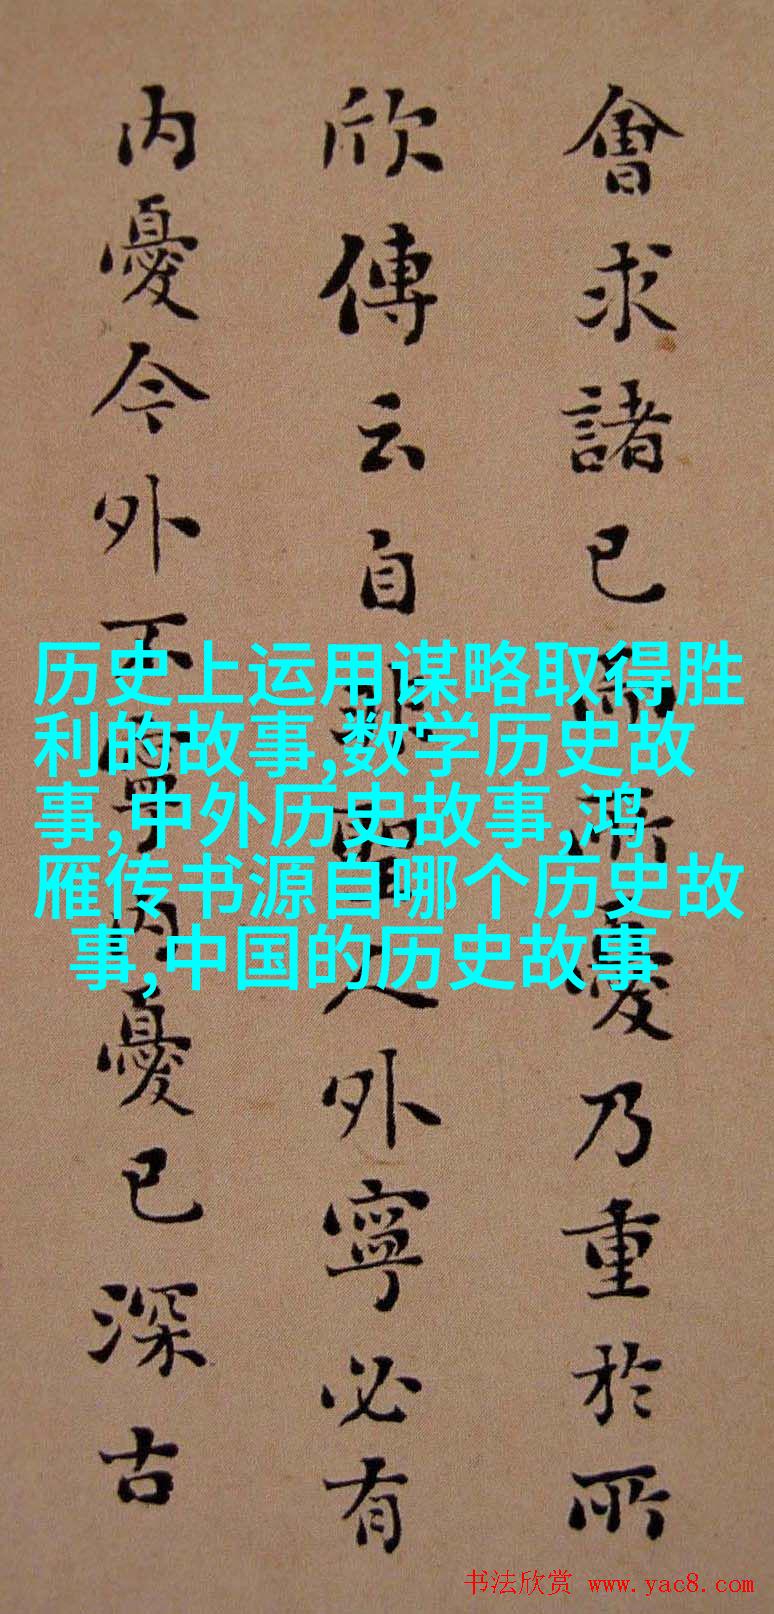 會求諸己所憂乃重於所
欣傳云自非人外寧必有
内憂今外不寧内憂已深古
历史上运用谋略取得胜
利的故事,数学历史故
事,中外历史故事,鸿
雁传书源自哪个历史故
事,中国的历史故事
书法欣赏 www.yac8.com